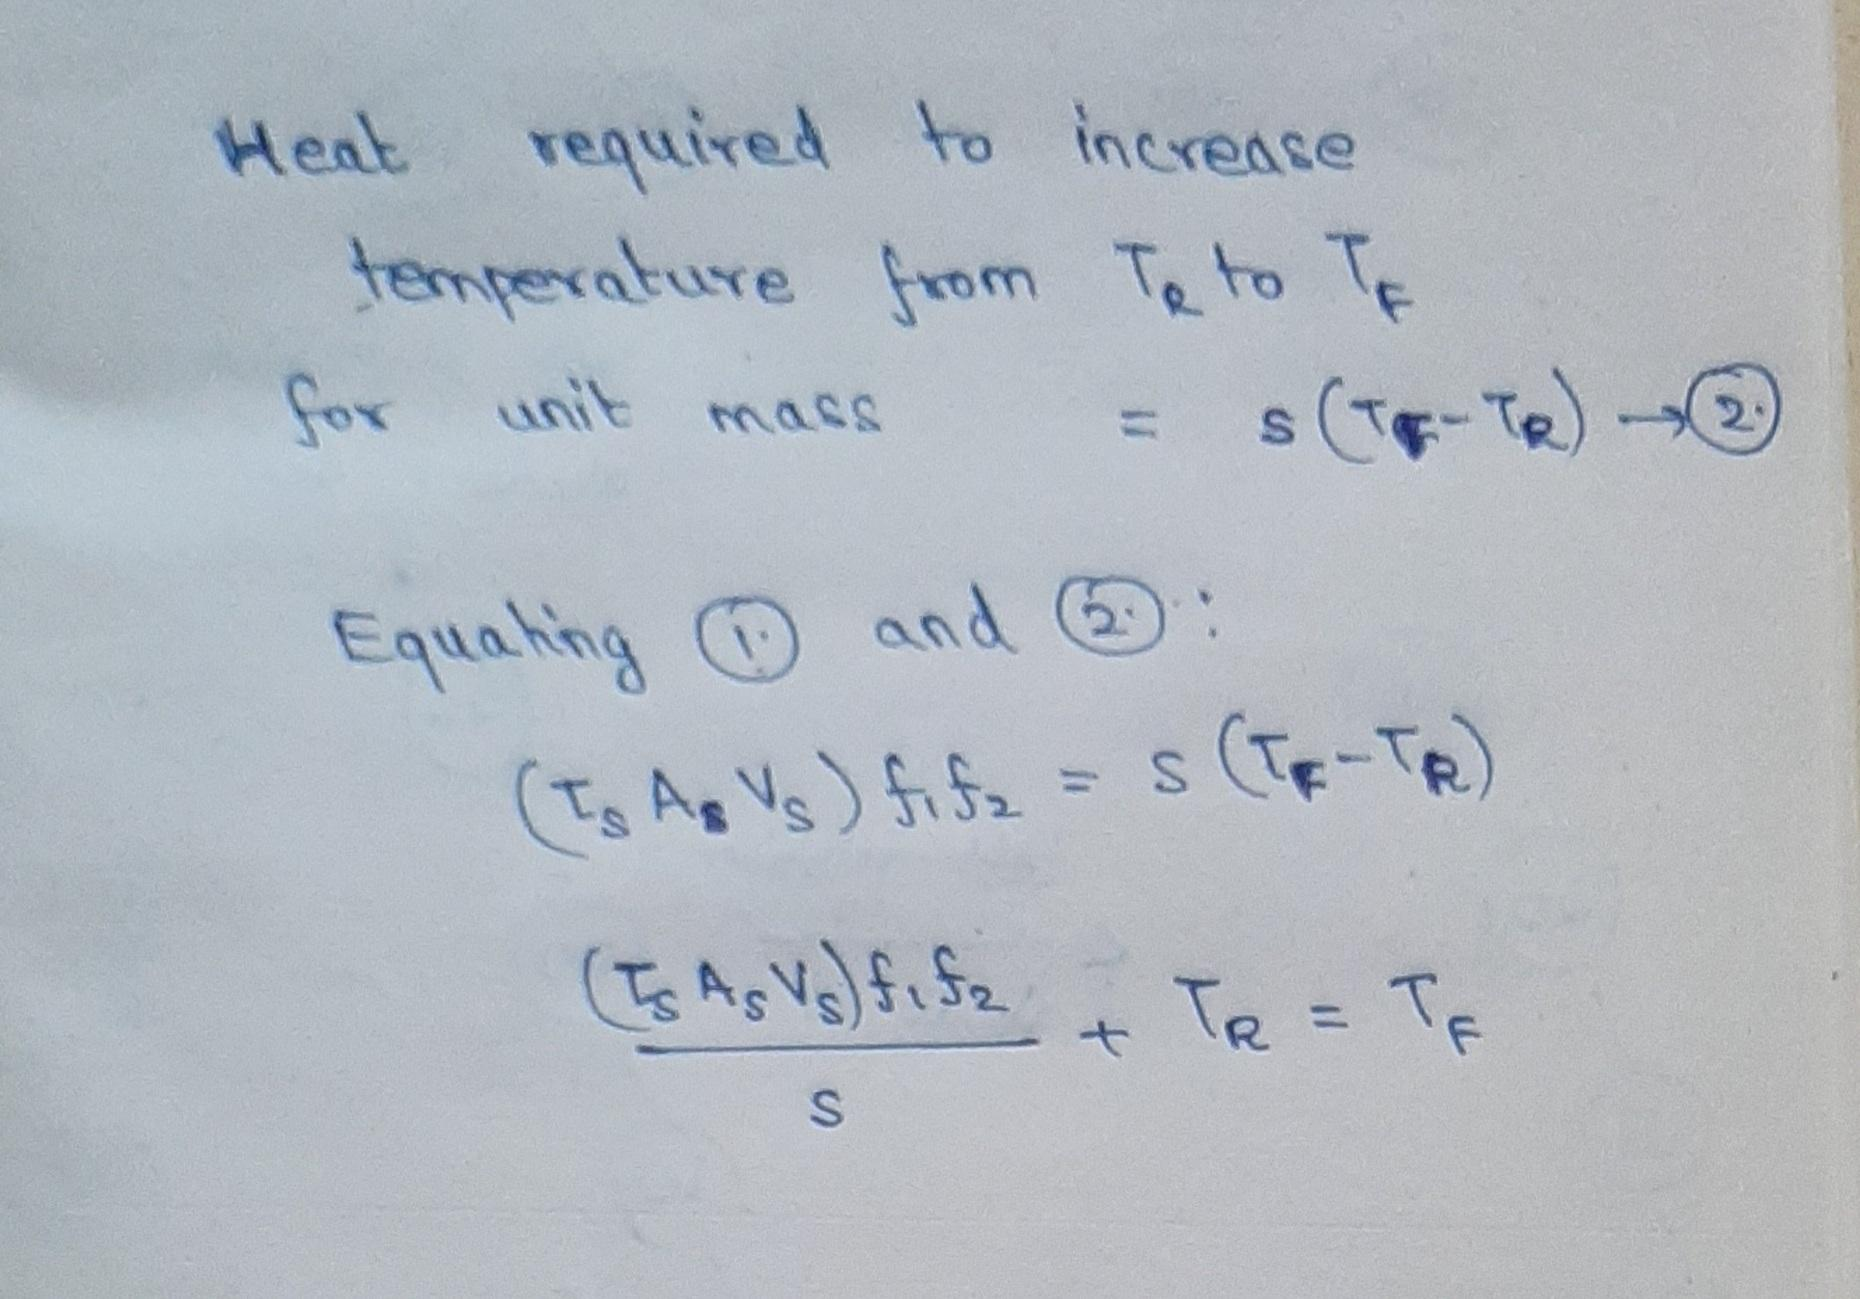 Heat required to increase
temperature from T_R to T_F
for unit mass = s(T_F - T_R) → ②.
Equating ①. and ②. :
(τ_S A_S V_S) f_1 f_2 = s (T_F - T_R)
(τ_S A_S V_S) f_1 f_2 / s + T_R = T_F